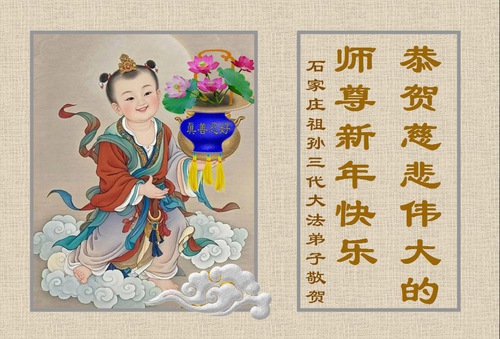 恭贺慈悲伟大的
师尊新年快乐
石家庄祖孙三代大法弟子敬贺
真善忍好